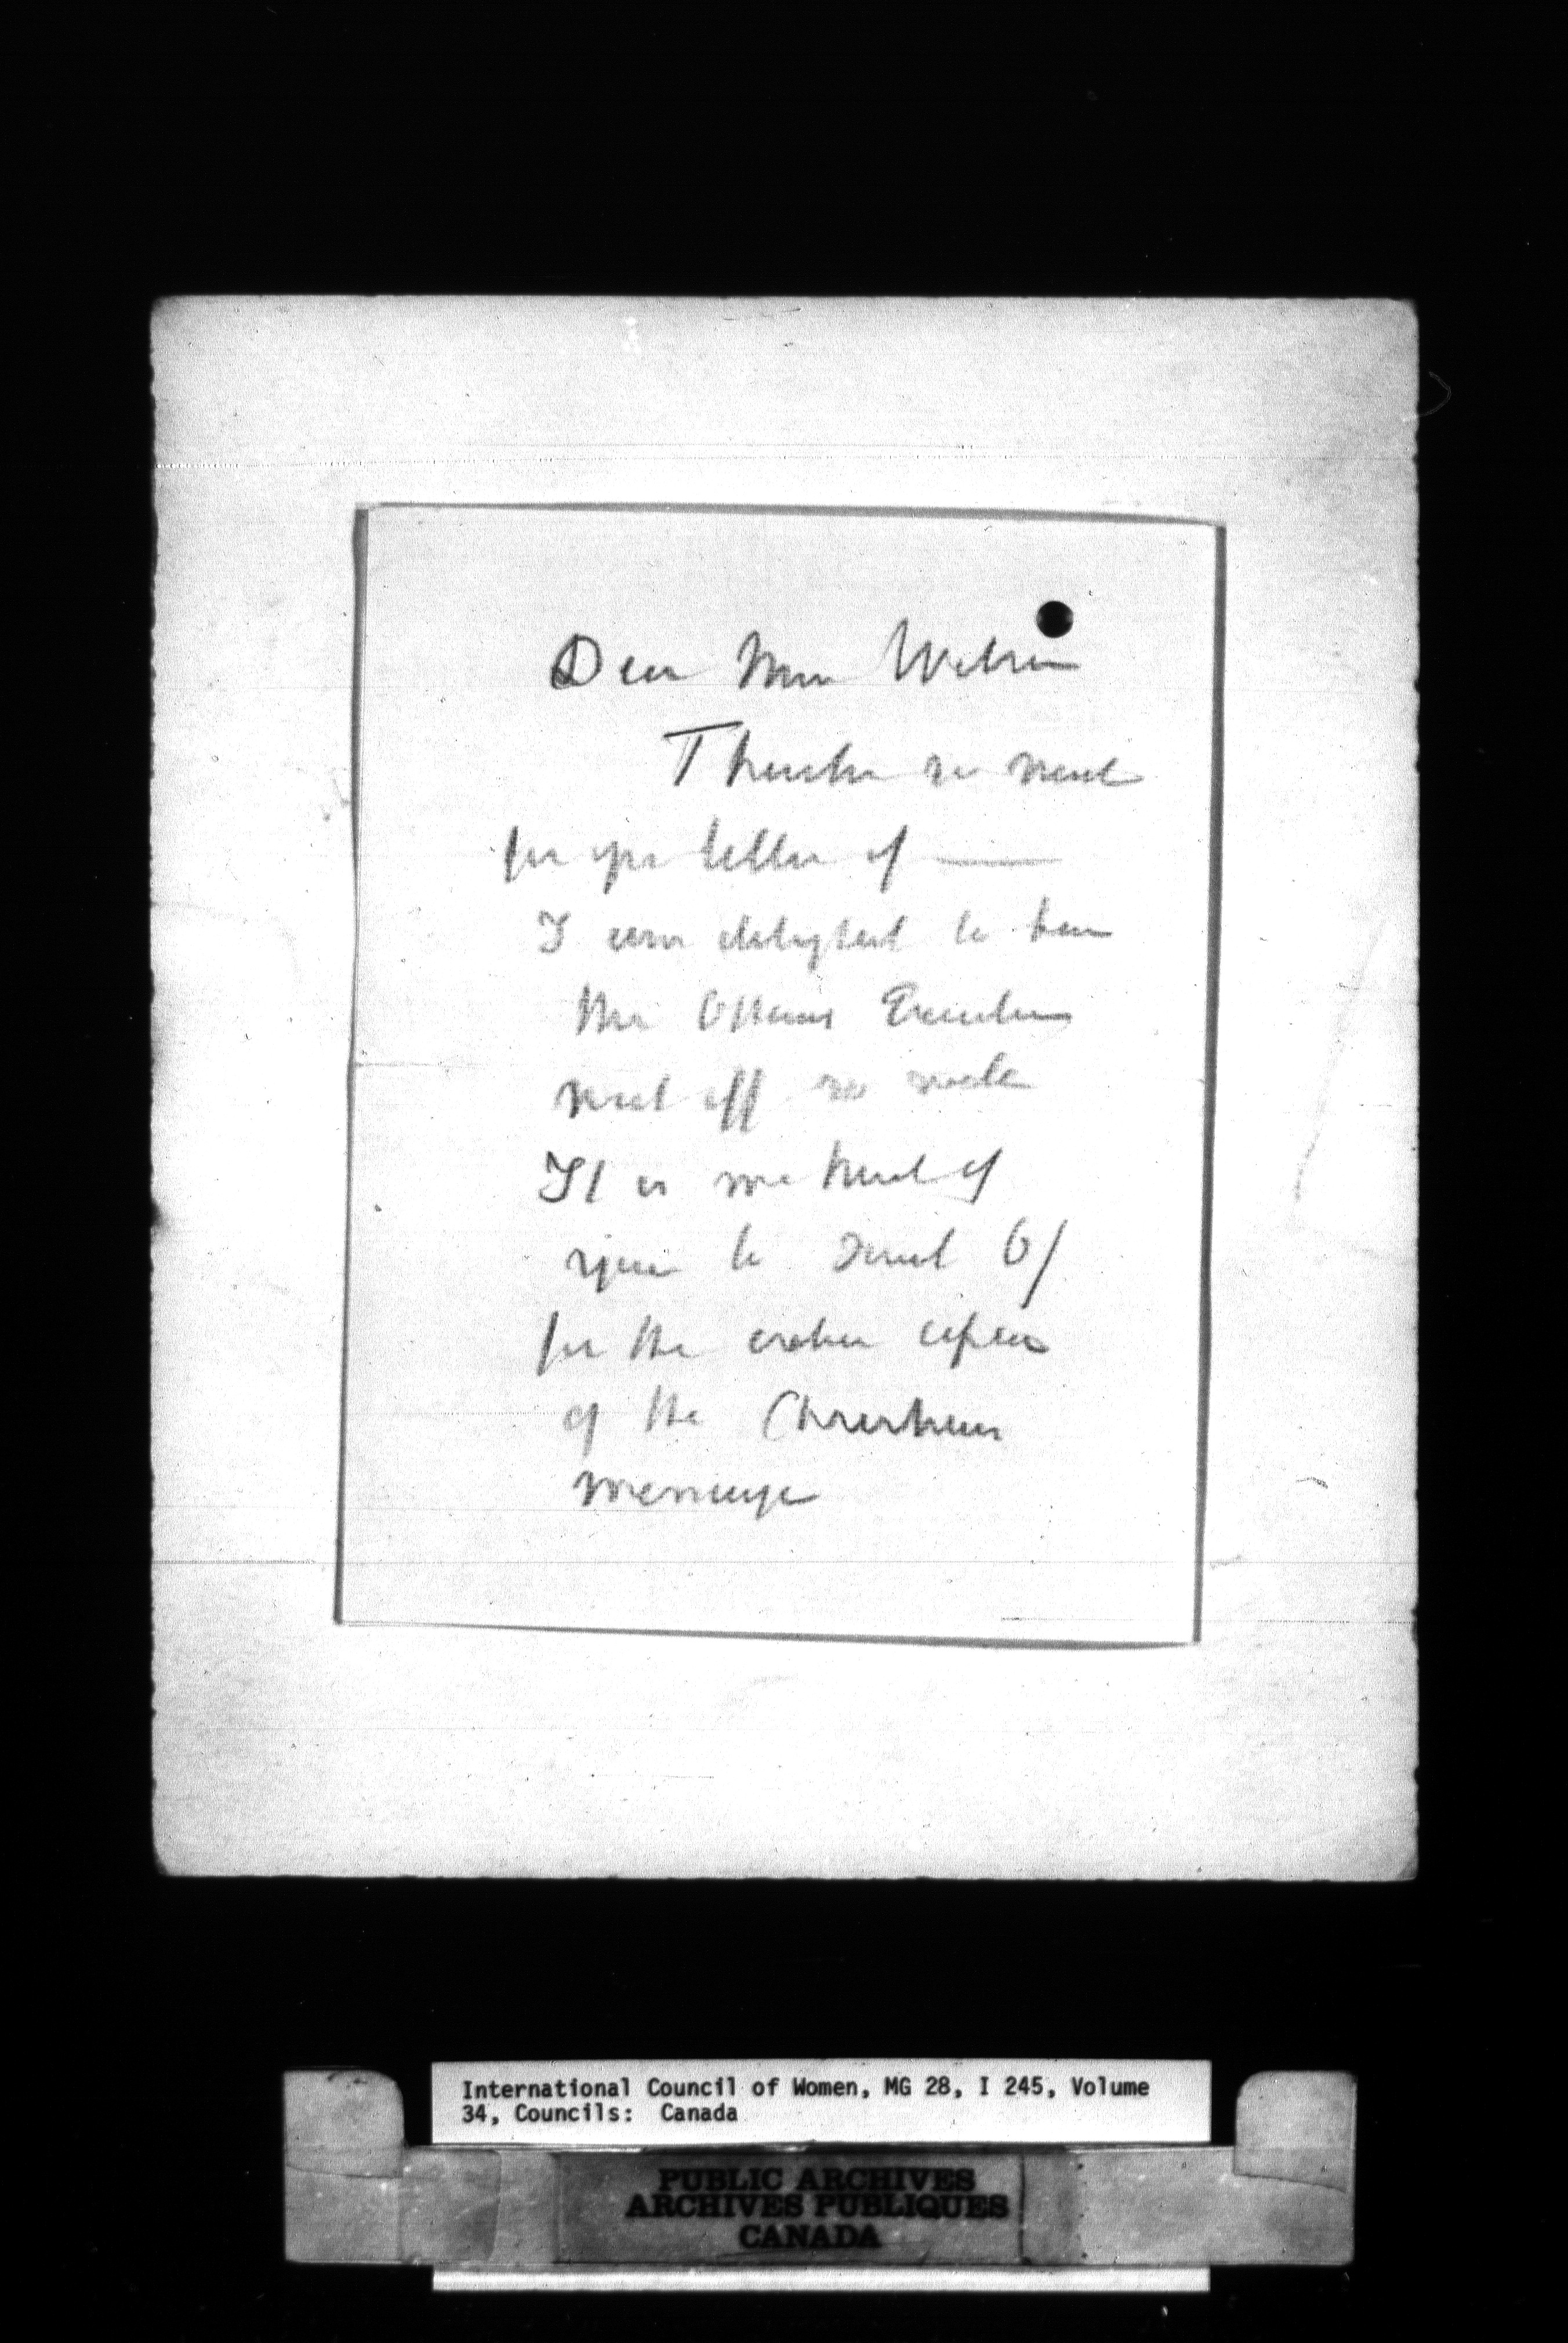 Dear Miss Wilson
Thanks so much
for yr letter of —
I am delighted to hear
the Ottawa Executive
went off so well
It is so kind of
you to send 6/
for the extra copies
of the Christmas
message
International Council of Women, MG 28, I 245, Volume
34, Councils: Canada
PUBLIC ARCHIVES
ARCHIVES PUBLIQUES
CANADA